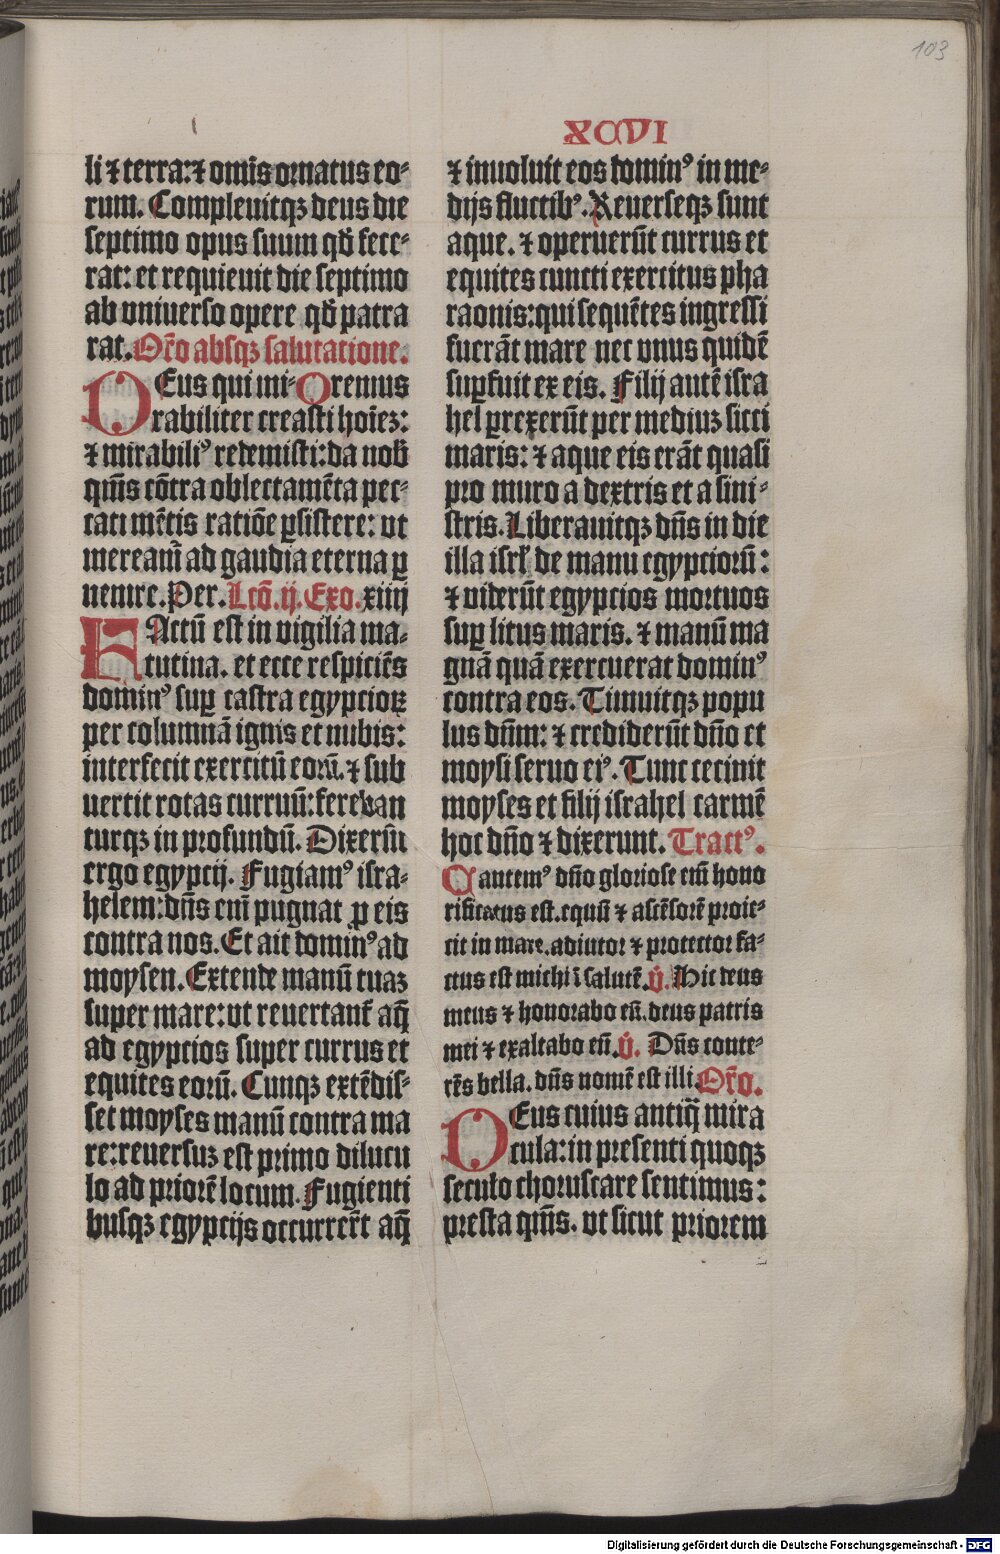 103
XCVI
li ⁊ terra: ⁊ omīs ornatus eo⸗
rum. Compleuitqꝫ deus die
septimo opus suum qđ fece⸗
rat: et requieuit die septimo
ab vniuerso opere qđ patra
rat. Or̄o absqꝫ salutatione.
DEus qui mi⸗ Oremus
rabiliter creasti hoīeꝫ:
⁊ mirabiliꝰ redemisti: da nob̄
qm̄s cōtra oblectamēta pec⸗
cati mētis ratiōe ꝑsistere: vt
meream̄ ad gaudia eterna ꝑ
uenire. Per. Lcō. ij. Exo. xiiij
FActū est in vigilia ma⸗
tutina. et ecce respiciēs
dominꝰ suꝑ castra egypcioꝝ
per columnā ignis et nubis:
interfecit exercitū eorū. ⁊ sub
uertit rotas curruū: fereban
turqꝫ in profundū. Dixerūt
ergo egypcij. Fugiamꝰ isra⸗
helem: dn̄s eni̅ pugnat ꝓ eis
contra nos. Et ait dominꝰ ad
moysen. Extende manū tuaꝫ
super mare: vt reuertant̄ aq̄
ad egypcios super currus et
equites eorū. Cunqꝫ extēdis⸗
set moyses manū contra ma
re: reuersuꝫ est primo dilucu
lo ad priorē locum. Fugienti
busqꝫ egypcijs occurrer̄t aq̄
⁊ inuoluit eos dominꝰ in me⸗
dijs fluctibꝰ. Reuerseqꝫ sunt
aque. ⁊ operuerūt currus et
equites cuncti exercitus pha
raonis: qui sequētes ingressi
fuerāt mare nec vnus quidē
suꝑfuit ex eis. Filij autē isra
hel ꝑrexerūt per mediuꝫ sicci
maris: ⁊ aque eis erāt quasi
pro muro a dextris et a sini⸗
stris. Liberauitqꝫ dn̄s in die
illa isrł de manu egypciorū:
⁊ viderūt egypcios mortuos
suꝑ litus maris. ⁊ manū ma
gnā quā exercuerat dominꝰ
contra eos. Timuitqꝫ popu
lus dn̄m: ⁊ crediderūt dn̄o et
moysi seruo eiꝰ. Tunc cecinit
moyses et filij israhel carmē
hoc dn̄o ⁊ dixerunt. Tractꝰ.
Cantemꝰ dn̄o gloriose eni̅ hono
rificatus est. equū ⁊ ascēsorē proie⸗
cit in mare. adiutor ⁊ protector fa⸗
ctus est michi ī salutē. v̄. Hic deus
meus ⁊ honorabo eū. deus patris
mei ⁊ exaltabo eū. v̄. Dn̄s conte⸗
rēs bella. dn̄s nomē est illi. Or̄o.
DEus cuius antiq̄ mira
cula: in presenti quoqꝫ
seculo choruscare sentimus:
presta qm̄s. vt sicut priorem
Digitalisierung gefördert durch die Deutsche Forschungsgemeinschaft - DFG